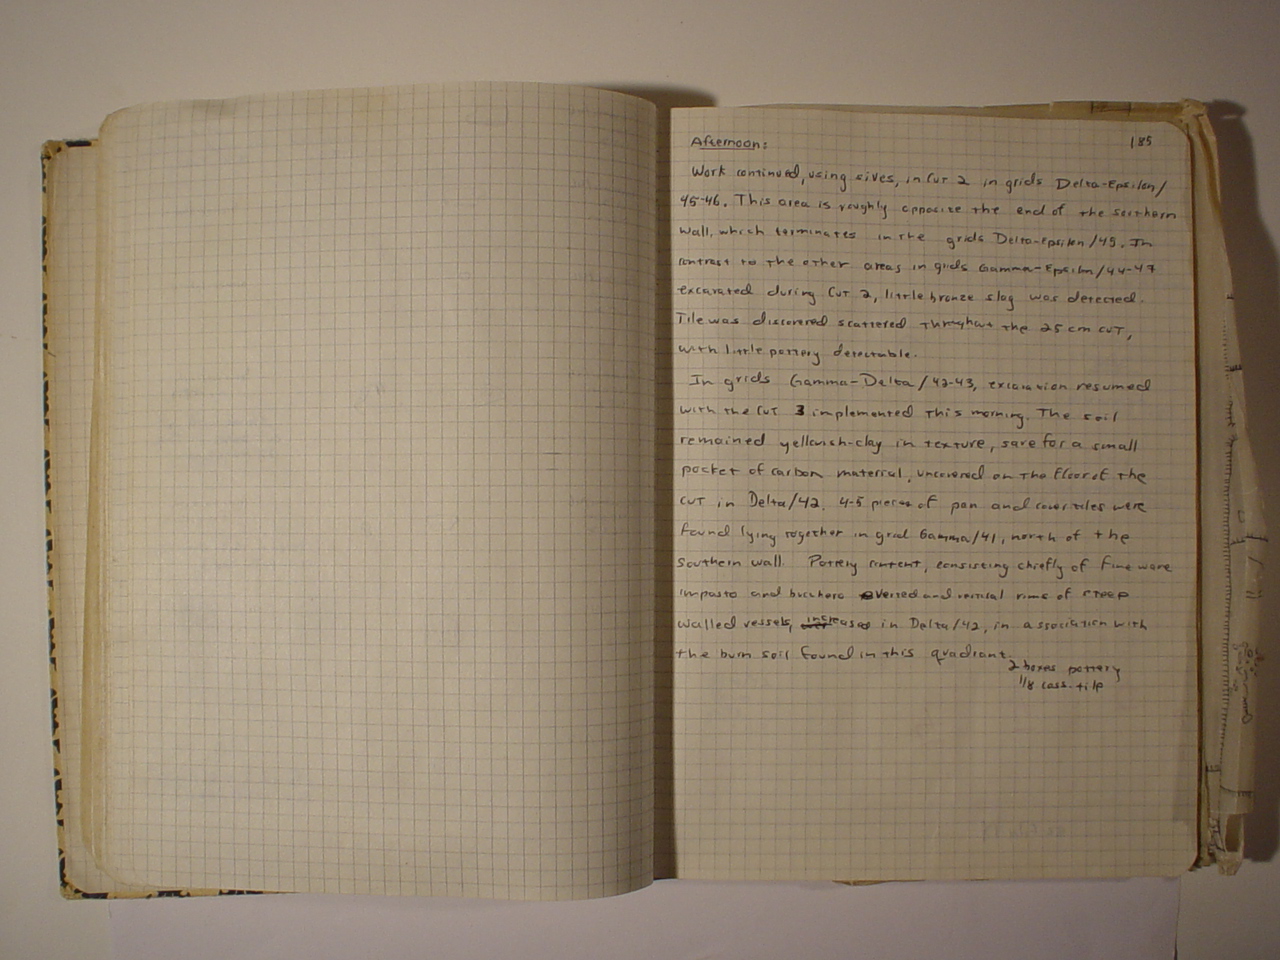 185
Afternoon:
Work continued, using sives, in Cut 2 in grids Delta-Epsilon/
45-46. This area is roughly opposite the end of the southern
wall, which terminates in the grids Delta-Epsilon/45. In
contrast to the other areas in grids Gamma-Epsilon/44-47
excavated during Cut 2, little bronze slag was detected.
Tile was discovered scattered throughout the 25 cm cut,
with little pottery detectable.
In grids Gamma-Delta/42-43, excavation resumed
with the Cut 3 implemented this morning. The soil
remained yellowish-clay in texture, save for a small
pocket of carbon material, uncovered on the floor of the
cut in Delta/42. 4-5 pieces of pan and cover tiles were
found lying together in grid Gamma/41, north of the
southern wall. Pottery content, consisting chiefly of fine ware
impasto and bucchero everted and vertical rims of steep
walled vessels, increased in Delta/42, in association with
the burn soil found in this quadrant.
2 boxes pottery
1/8 cass. tile